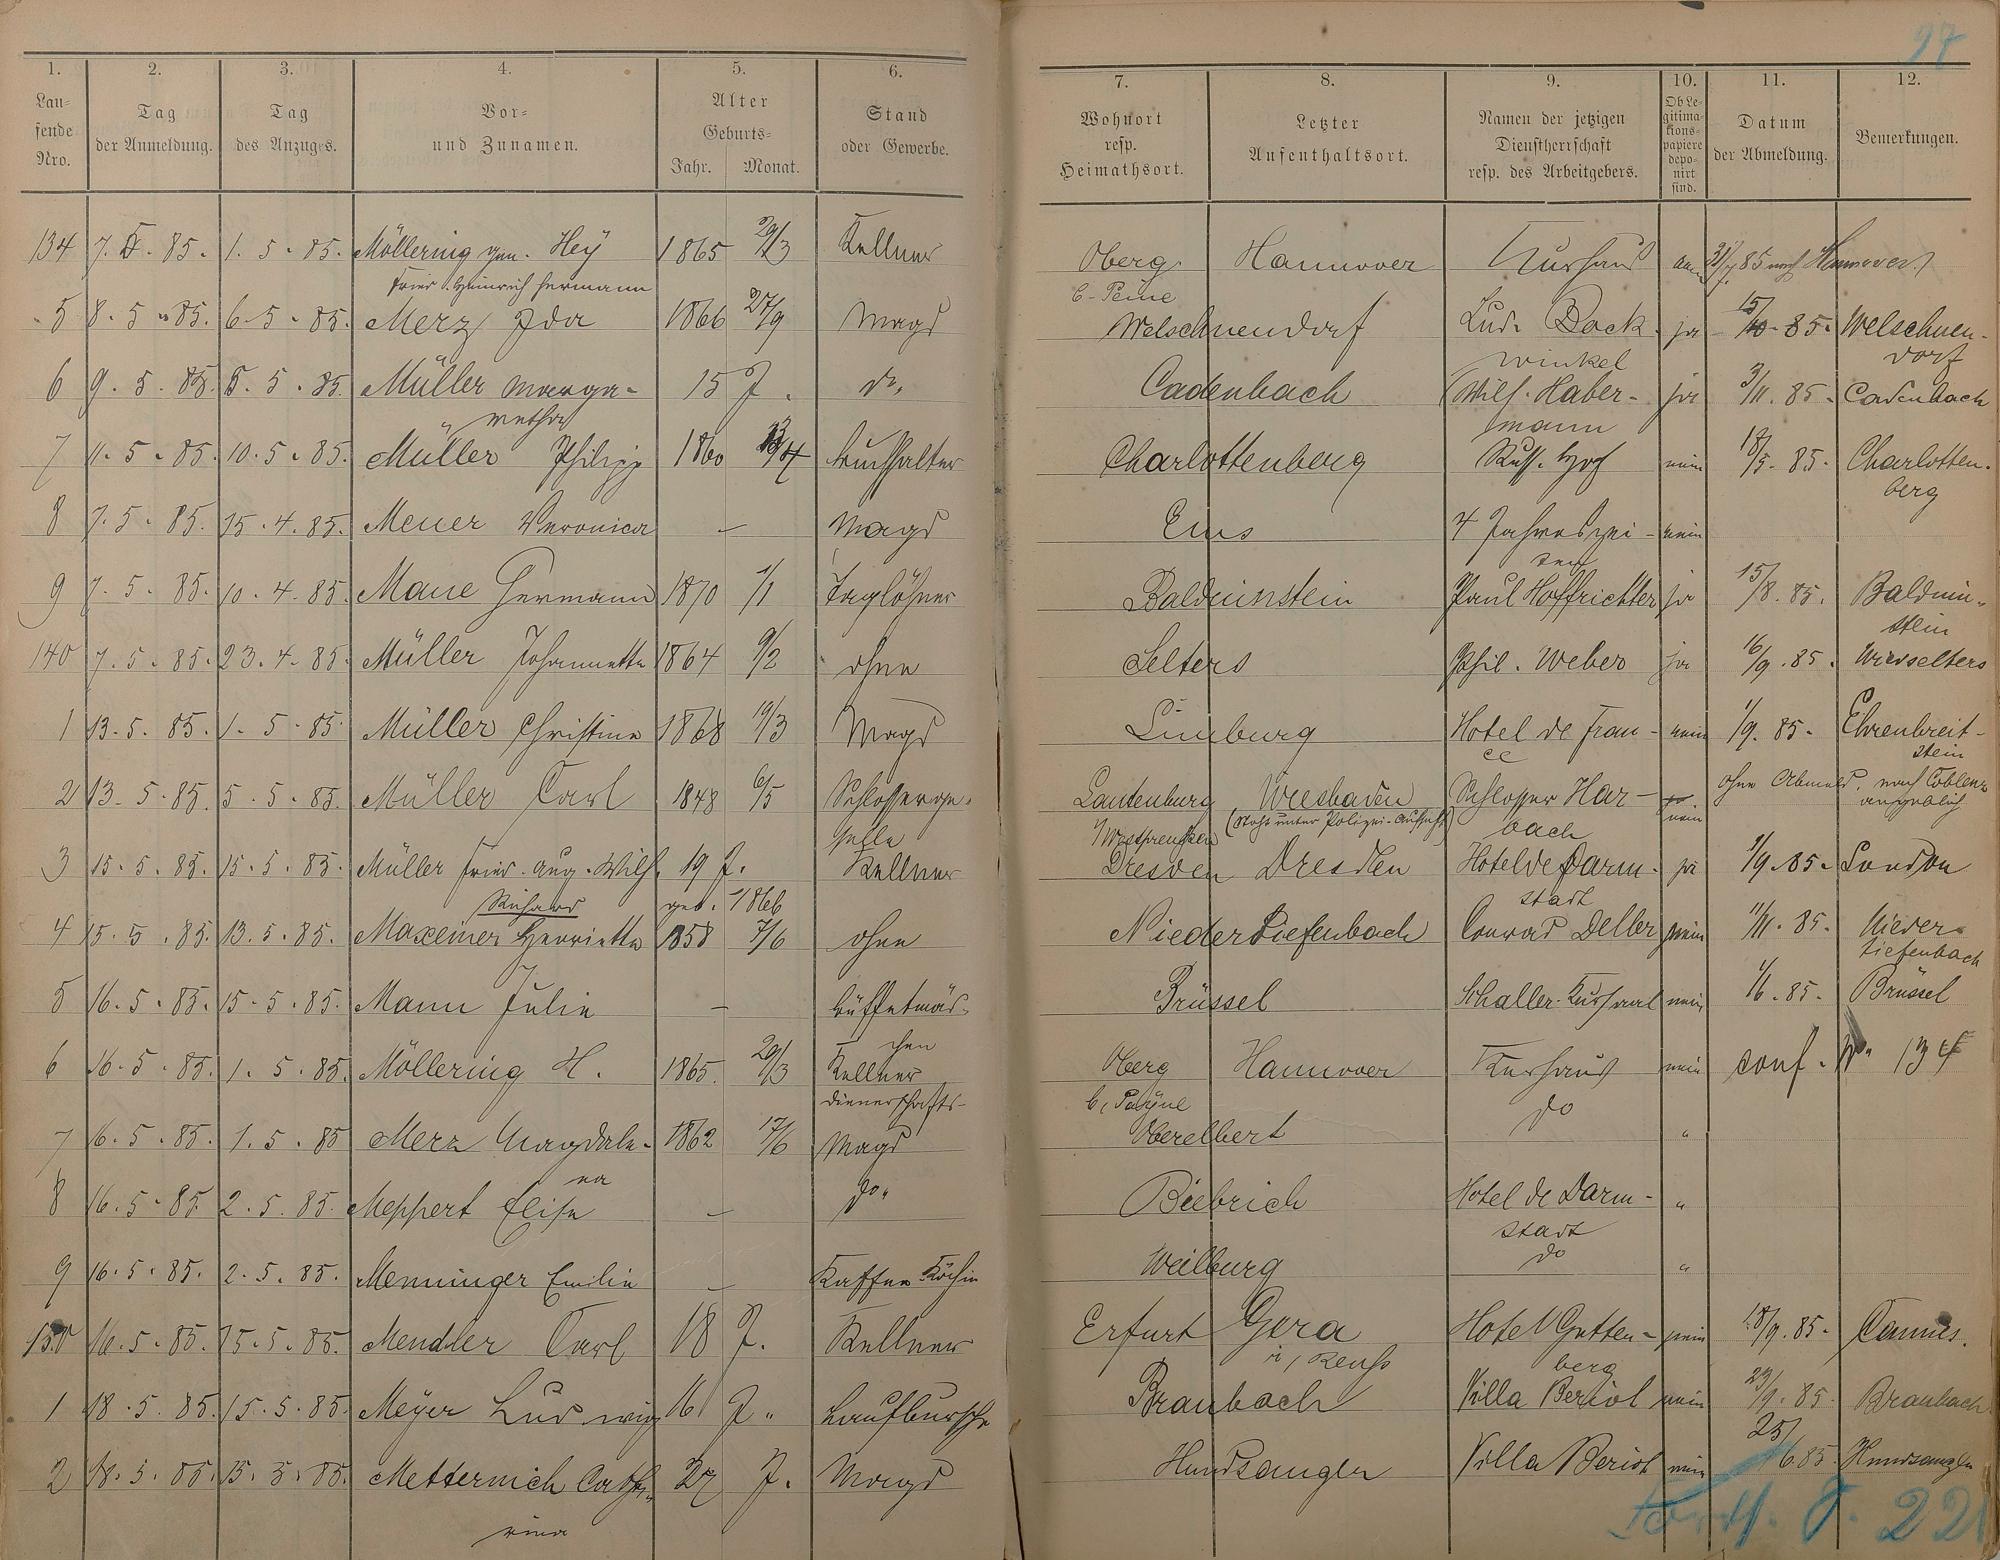 97
1. 2. 3. 4. 5. 6. 7. 8. 9. 10. 11. 12.
Laufende Nro. Tag der Anmeldung. Tag des Anzuges. Vor- und Zunamen. Alter Geburts- Jahr. Monat. Stand oder Gewerbe. Wohnort resp. Heimathsort. Letzter Aufenthaltsort. Namen der jetzigen Dienstherrschaft resp. des Arbeitgebers. Ob Legitimationspapiere deponirt sind. Datum der Abmeldung. Bemerkungen.
134 7. 5. 85. 1. 5. 85. Möllering gen. Hey 1865 29/3 Kellner Oberg Hannover Kurhaus 31/7 85 nach Hannover
Fried. Heinrich Hermann b. Peine
5 8. 5. 85. 6. 5. 85. Merz Ida 1866 27/9 Magd Welschneudorf Lud. Bock- ja 15/10. 85. Welschneu-
winkel dorf
6 9. 5. 85. 5. 5. 85. Müller Marga- 15 J. do. Cadenbach Wilh. Haber- ja 3/11. 85. Cadenbach
retha mann
7 11. 5. 85. 10. 5. 85. Müller Philipp 1860 /4 Buchhalter Charlottenberg Russ. Hof nein 18/5. 85. Charlotten-
berg
8 7. 5. 85. 15. 4. 85. Meuer Veronica — Magd Ems 4 Jahreszei- nein
ten
9 7. 5. 85. 10. 4. 85. Maue Hermann 1870 1/1 Taglöhner Balduinstein Paul Hoffrichter ja 15/8. 85. Balduin-
stein
140 7. 5. 85. 23. 4. 85. Müller Johannette 1864 9/2 ohne Selters Phil. Weber ja 16/9. 85. Niedselters
1 13. 5. 85. 1. 5. 85. Müller Christine 1868 19/3 Magd Limburg Hotel de Fran- nein 1/9. 85. Ehrenbreit-
ce stein
2 13. 5. 85. 5. 5. 85. Müller Carl 1848 6/5 Schlosserge- Lautenburg Wiesbaden Schlosser Har- nein ohne Abmeld. nach Coblenz
selle i/Westpreußen (steht unter Polizei-Aufsicht) bach angeblich
3 15. 5. 85. 15. 5. 85. Müller Fried. Aug. Wilh. 19 J. Kellner Dresden Dresden Hotel de Darm- ja 1/9. 85. London
Richard geb. 1866 stadt
4 15. 5. 85. 13. 5. 85. Maxeiner Henriette 1858 7/6 ohne Niedertiefenbach Conrad Deller nein 11/11. 85. Nieder-
tiefenbach
5 16. 5. 85. 15. 5. 85. Mann Julie — Büffetmäd- Brüssel Schaller Kursaal nein 1/6. 85. Brüssel
chen
6 16. 5. 85. 1. 5. 85. Möllering H. 1865. 29/3 Kellner Oberg Hannover Kurhaus nein conf. No 134
Dienerschafts- b/
7 16. 5. 85. 1. 5. 85 Merz Magdale- 1862 17/6 Magd Oberelbert do "
na
8 16. 5. 85 2. 5. 85. Meppert Elise — do. Biebrich Hotel de Darm- "
stadt
9 16. 5. 85. 2. 5. 85. Menninger Emilie — Kaffee Köchin Weilburg do "
150 16. 5. 85. 15. 5. 85. Mendler Carl 18 J. Kellner Erfurt Gera Hotel Gutten- nein 18/9. 85. Cannes.
i/Reuss berg
1 18. 5. 85. 15. 5. 85. Meÿer Ludwig 16 J. Laufbursche Braubach Villa Beriot nein 29/9. 85. Braubach
2 18. 5. 85. 15. 5. 85. Metternich Cathe- 27 J. Magd Hundsangen Villa Beriot nein 25/6. 85. Hundsangen
rina
Forts. S. 221